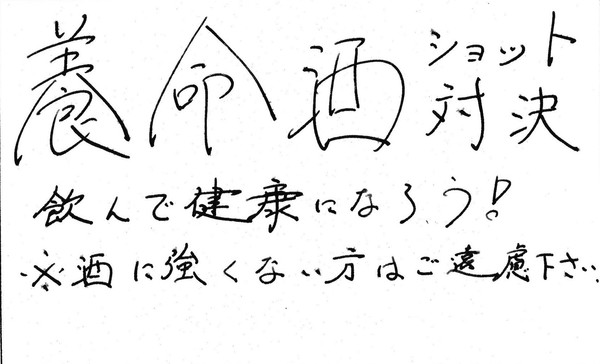 養命酒ショット対決
飲んで健康になろう!
※酒に強くない方はご遠慮下さい。